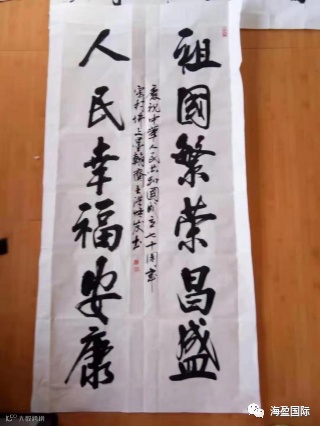 祖國繁荣昌盛
慶祝中華人民共和國成立七十周年
人民幸福安康
海盈国际